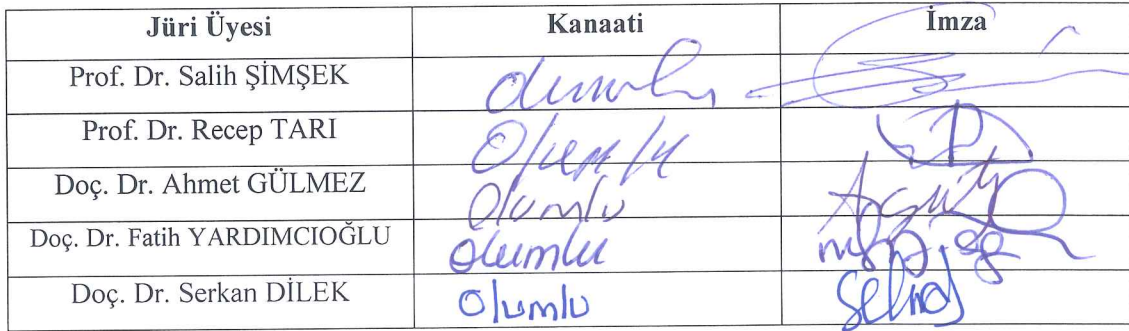 Jüri Üyesi Kanaati İmza
Prof. Dr. Salih ŞİMŞEK olumlu
Prof. Dr. Recep TARI Olumlu
Doç. Dr. Ahmet GÜLMEZ Olumlu
Doç. Dr. Fatih YARDIMCIOĞLU olumlu
Doç. Dr. Serkan DİLEK Olumlu